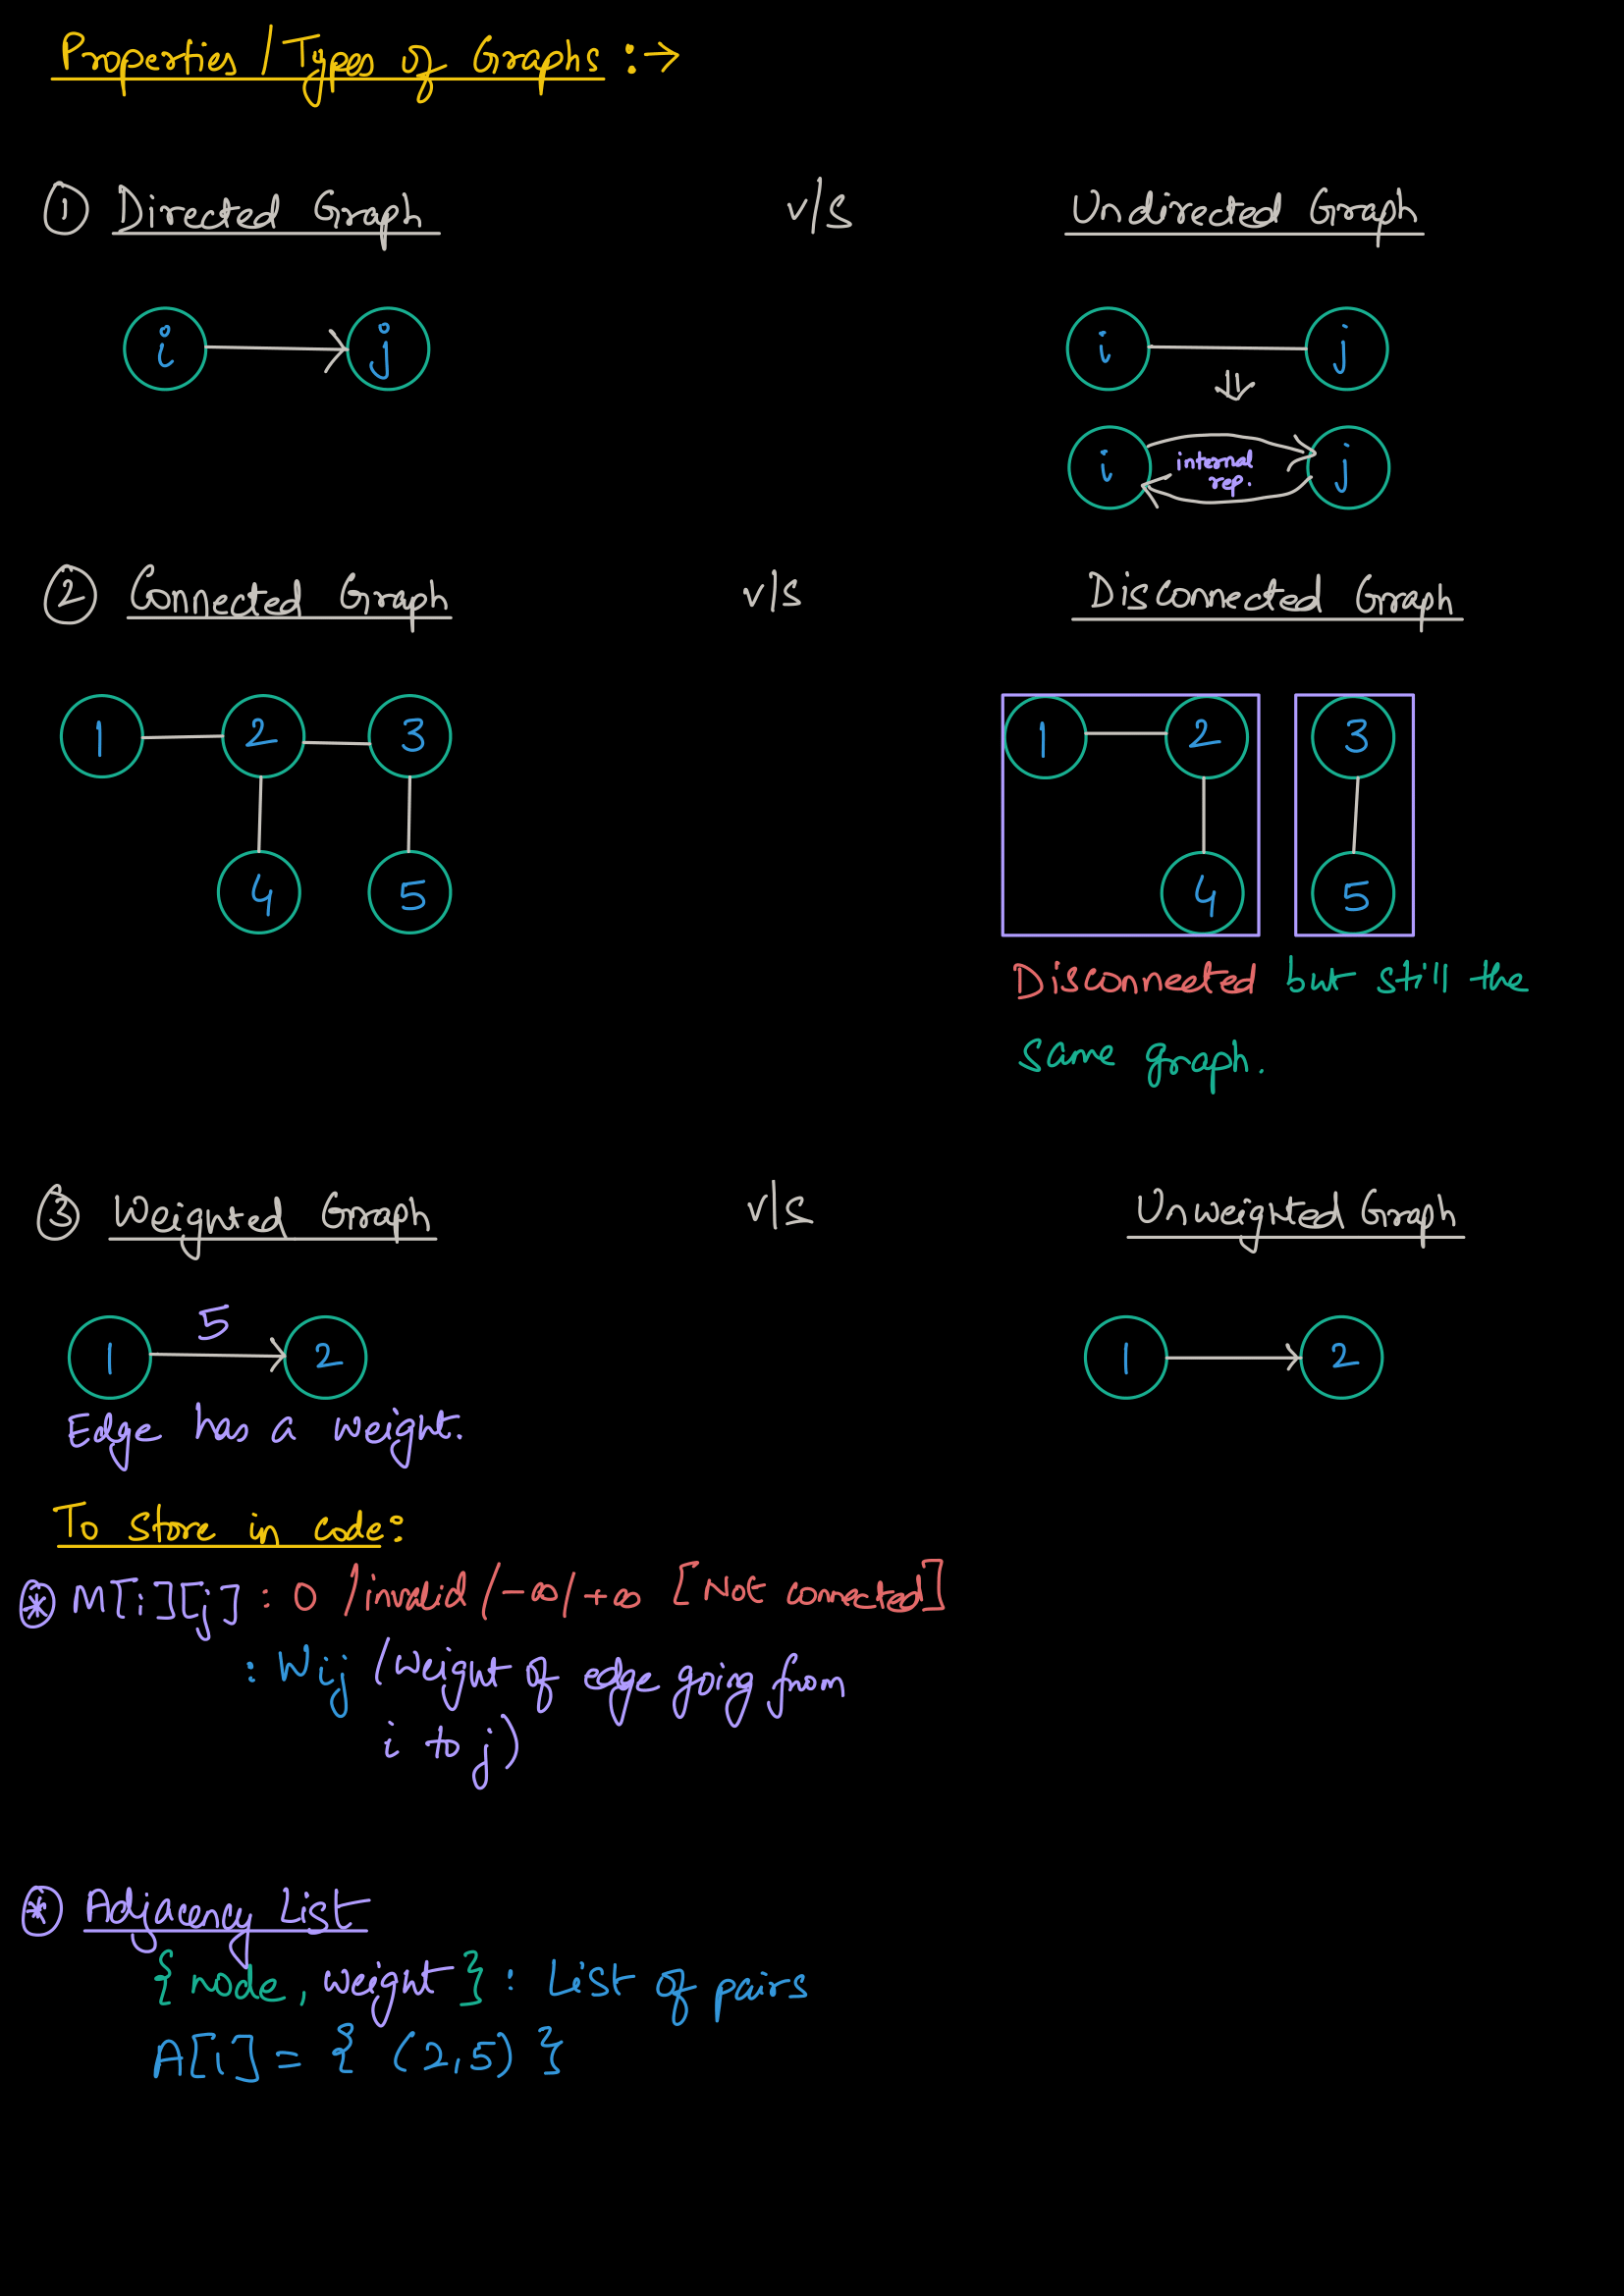 Properties / Types of Graphs :→
① Directed Graph v/s Undirected Graph
i j i j
i internal rep. j
② Connected Graph v/s Disconnected Graph
1 2 3 1 2 3
4 5 4 5
Disconnected but still the
same graph.
③ Weighted Graph v/s Unweighted Graph
1 5 2 1 2
Edge has a weight.
To store in code:
* M[i][j] : 0 / invalid / -∞ / +∞ [Not connected]
: Wij (Weight of edge going from
i to j)
* Adjacency List
{ node, weight } : List of pairs
A[i] = { (2,5) }